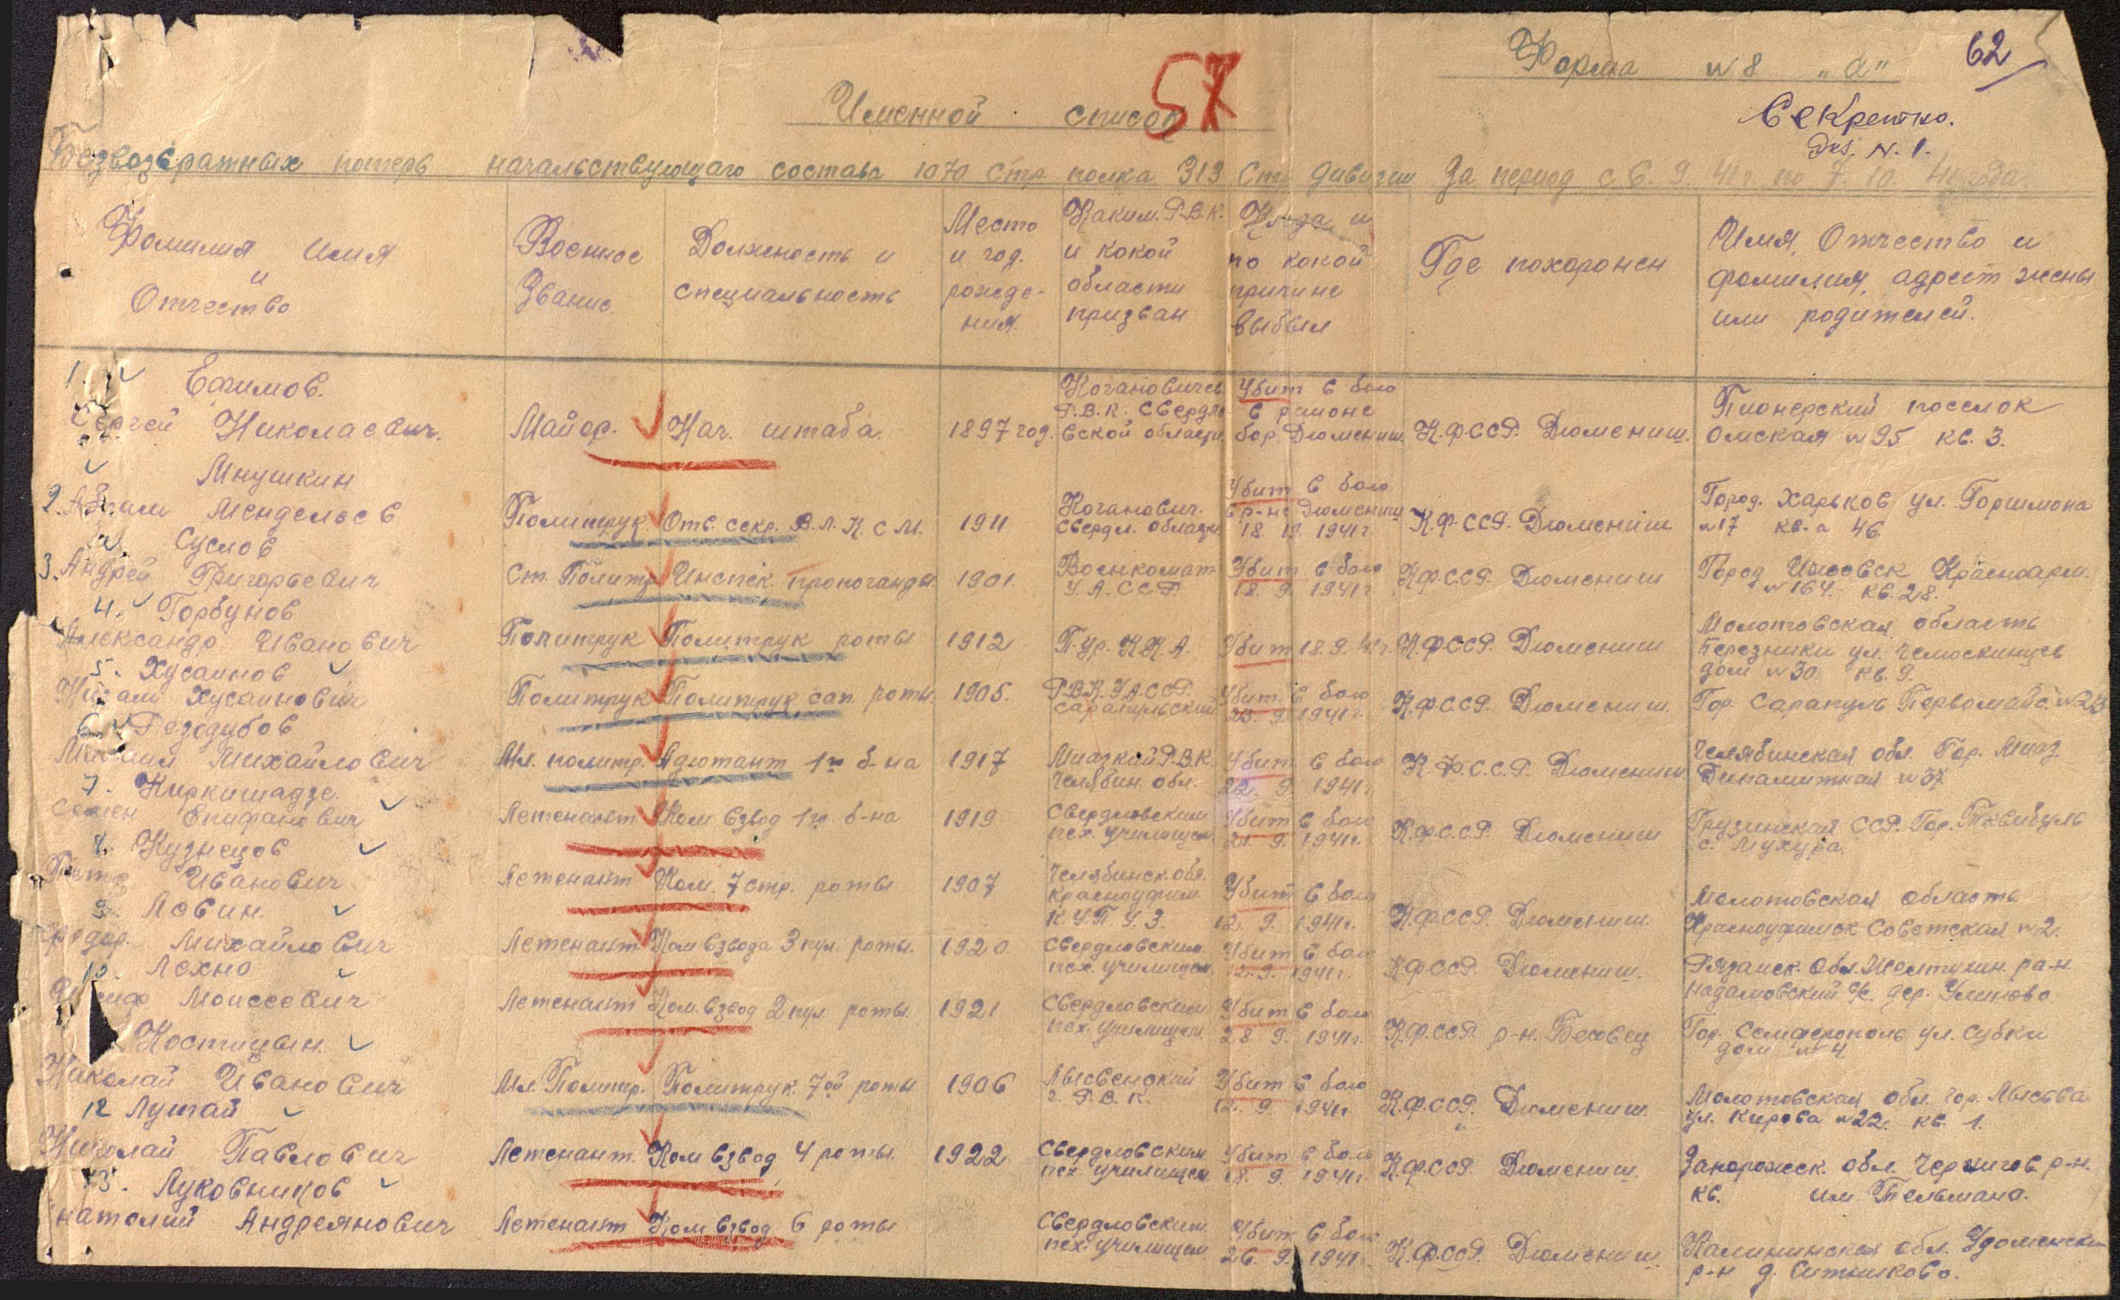 Форма № 8 „а"
62
57
Именной список
Секретно.
Экз. N. 1.
Безвозвратных потерь начальствующаго состава 1070 стр полка 313 Стр дивизии за период с 6. 9. 41г по 7. 10. 41 года.
Фамилия Имя и Отчество
Военное Звание
Должность и специальность
Место и год. рождения
Каким. Р.В.К. и какой области призван
Когда и по какой причине выбыл
Где похоронен
Имя, Отчество и фамилия, адрест жены или родителей.
1. Ефимов.
Сергей Николаевич.
Майор.
Нач. штаба
1897 год.
Когановичев. Р.В.К. Свердловской области
Убит в бою в районе бор Дюмениш.
К.Ф.ССР. Дюмениш.
Пионерский поселок
Омская №95 кв. 3.
Мнушкин
2. Абрам Менделев
Политрук
Отв. секр. В.Л.К.С.М.
1911
Коганович. Свердл. области
Убит в бою в р-не Дюмениш 18 1941г
К.Ф.ССР. Дюмениш
Город. Харьков ул.
№17 кв-а 46
Суслов
3. Андрей Григорьевич
Ст. Политр
Инспек. пропоганды
1901.
Военкомат У.А.ССР
Убит в бою 18. 9. 1941г
К.Ф.ССР. Дюмениш
Город Ижевск Красноарм. №164. кв. 28.
4. Горбунов
Александр Иванович
Политрук
Политрук роты
1912
П.Ур. К.К.А.
Убит 18. 9. 41г.
К.Ф.ССР. Дюмениш
Молотовская область
Березники ул. Челюскинцев
дом №30 кв. 9.
5. Хусаинов
Хусаинович
Политрук
Политрук сап. роты
1905.
Р.В.К. УАССР. Сарапульский
Убит в бою 9. 1941г.
К.Ф.ССР. Дюмениш
Гор. Сарапуль Первомайс
6. Дезодубов
Михаил Михайлович
Мл. политр.
Адютант 1го б-на
1917
Миаский Р.В.К. Челябин. обл.
Убит в бою 22. 9. 1941г.
К.Ф.С.С.Р. Дюмениш
Челябинская обл. Гор. Миаз
Динамитная №37
7. Киркишадзе.
Семен Епифанович
Летенант
Ком взвод 1го б-на
1919
Свердловским пех. училищем
Убит в бою 21. 9. 1941г.
К.Ф.С.С.Р. Дюмениш
Грузинская ССР. Гор.
с. Мухура
8. Кузнецов
Петр Иванович
Летенант
Ком. 7 стр. роты
1907
Челябинск. обл. Красноуфим К.У.П. У.З.
Убит в бою 12. 9. 1941г.
К.Ф.ССР. Дюмениш.
Молотовская область
Красноуфимск Советская №2.
9. Левин.
Федор. Михайлович
Летенант
Ком взвода 3 пул. роты.
1920
Свердловским пех. училищем
Убит в бою 12. 9. 1941г.
К.Ф.ССР. Дюмениш.
Рязанск. Обл. Желтухин. ра-н
10. Лехно
Моисеевич
Летенант
Ком. взвод 2 пул роты
1921
Свердловским пех. училищем
Убит в бою 28. 9. 1941г.
К.Ф.ССР р-н. Бесовец
Гор. Семферополь ул. Субхи
дом №4
Костицын.
Николай Иванович
Мл. Политр.
Политрук. 7ой роты
1906
Лысвенский г. Р.В.К.
Убит в бою 12. 9. 1941г
К.Ф.ССР. Дюмениш
Молотовская обл. Гор. Лысьва
ул. Кирова №22. кв. 1.
12 Лутай
Николай Павлович
Летенант.
Ком взвод 4 роты.
1922
Свердловским пех. училищем
Убит в бою 18. 9. 1941г.
К.Ф.ССР. Дюмениш.
Запорожск. обл. Чернигов р-н.
кв. им. Тельмана.
13. Луковников
Анатолий Андреянович
Летенант
Ком взвод 6 роты
Свердловским пех. училищем
Убит в бою 26. 9. 1941г.
К.Ф.ССР. Дюмениш
Калининская обл. Удоменски
р-н д. Ситниково.